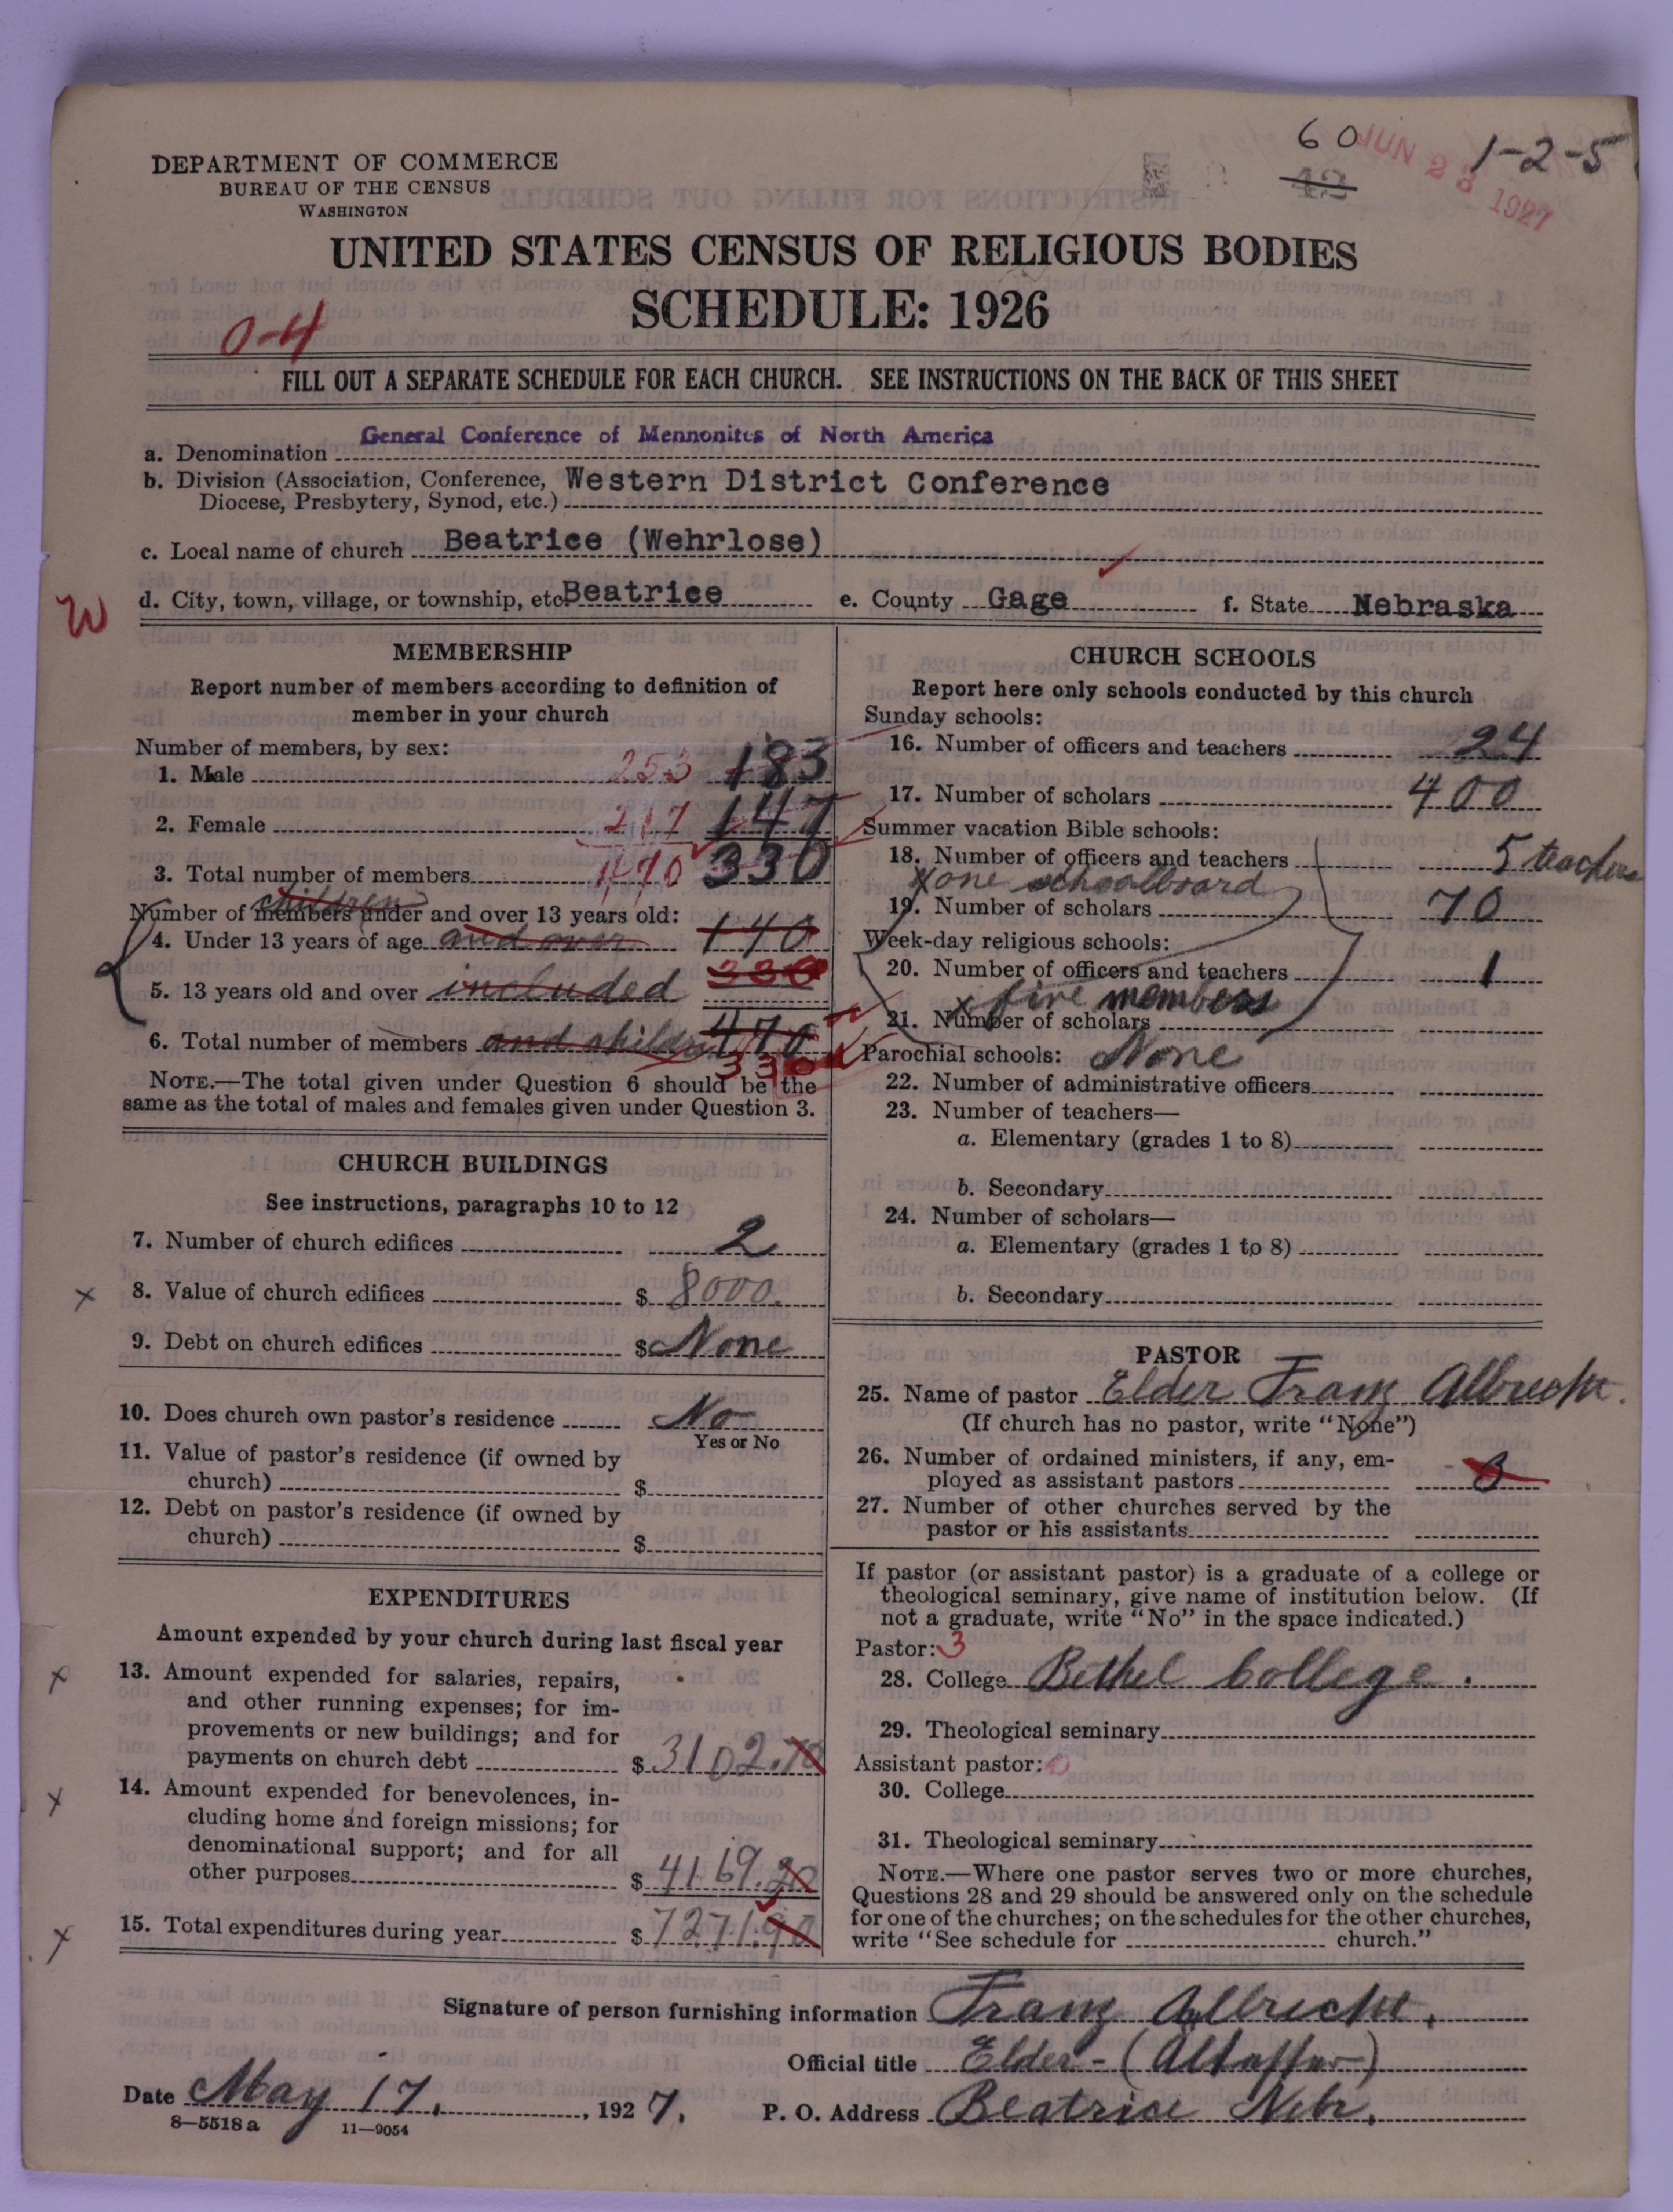 60 JUN 23 1927 1-2-5
42
DEPARTMENT OF COMMERCE
BUREAU OF THE CENSUS
WASHINGTON
UNITED STATES CENSUS OF RELIGIOUS BODIES
SCHEDULE: 1926
0-4
FILL OUT A SEPARATE SCHEDULE FOR EACH CHURCH. SEE INSTRUCTIONS ON THE BACK OF THIS SHEET
a. Denomination General Conference of Mennonites of North America
b. Division (Association, Conference, Western District Conference
Diocese, Presbytery, Synod, etc.)
c. Local name of church Beatrice (Wehrlose)
d. City, town, village, or township, etc. Beatrice e. County Gage f. State Nebraska
W
MEMBERSHIP
Report number of members according to definition of
member in your church
Number of members, by sex:
1. Male 253 183
2. Female 217 147
3. Total number of members 470 330
children
Number of members under and over 13 years old:
4. Under 13 years of age and over 140
330
5. 13 years old and over included
6. Total number of members and children 470
330
NOTE.—The total given under Question 6 should be the
same as the total of males and females given under Question 3.
CHURCH BUILDINGS
See instructions, paragraphs 10 to 12
7. Number of church edifices 2
x 8. Value of church edifices $ 8000.
9. Debt on church edifices $ None
10. Does church own pastor's residence No
Yes or No
11. Value of pastor's residence (if owned by
church) $
12. Debt on pastor's residence (if owned by
church) $
EXPENDITURES
Amount expended by your church during last fiscal year
x 13. Amount expended for salaries, repairs,
and other running expenses; for im-
provements or new buildings; and for
payments on church debt $ 3102.70
x 14. Amount expended for benevolences, in-
cluding home and foreign missions; for
denominational support; and for all
other purposes $ 4169.20
x 15. Total expenditures during year $ 7271.90
CHURCH SCHOOLS
Report here only schools conducted by this church
Sunday schools:
16. Number of officers and teachers 24
17. Number of scholars 400
Summer vacation Bible schools:
18. Number of officers and teachers 5 teachers
x one schoolboard
19. Number of scholars 70
Week-day religious schools:
20. Number of officers and teachers 1
x five members
21. Number of scholars
Parochial schools: None
22. Number of administrative officers
23. Number of teachers—
a. Elementary (grades 1 to 8)
b. Secondary
24. Number of scholars—
a. Elementary (grades 1 to 8)
b. Secondary
PASTOR
25. Name of pastor Elder Franz Albrecht.
(If church has no pastor, write "None")
26. Number of ordained ministers, if any, em-
ployed as assistant pastors
27. Number of other churches served by the
pastor or his assistants
If pastor (or assistant pastor) is a graduate of a college or
theological seminary, give name of institution below. (If
not a graduate, write "No" in the space indicated.)
Pastor: 3
28. College Bethel College.
29. Theological seminary
Assistant pastor: 0
30. College
31. Theological seminary
NOTE.—Where one pastor serves two or more churches,
Questions 28 and 29 should be answered only on the schedule
for one of the churches; on the schedules for the other churches,
write "See schedule for church."
Signature of person furnishing information Franz Albrecht.
Official title Elder - 
Date May 17, , 1927. P. O. Address Beatrice Nebr.
8—5518 a 11—9054